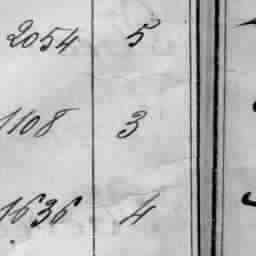 2054 5
1108 3
1636 4